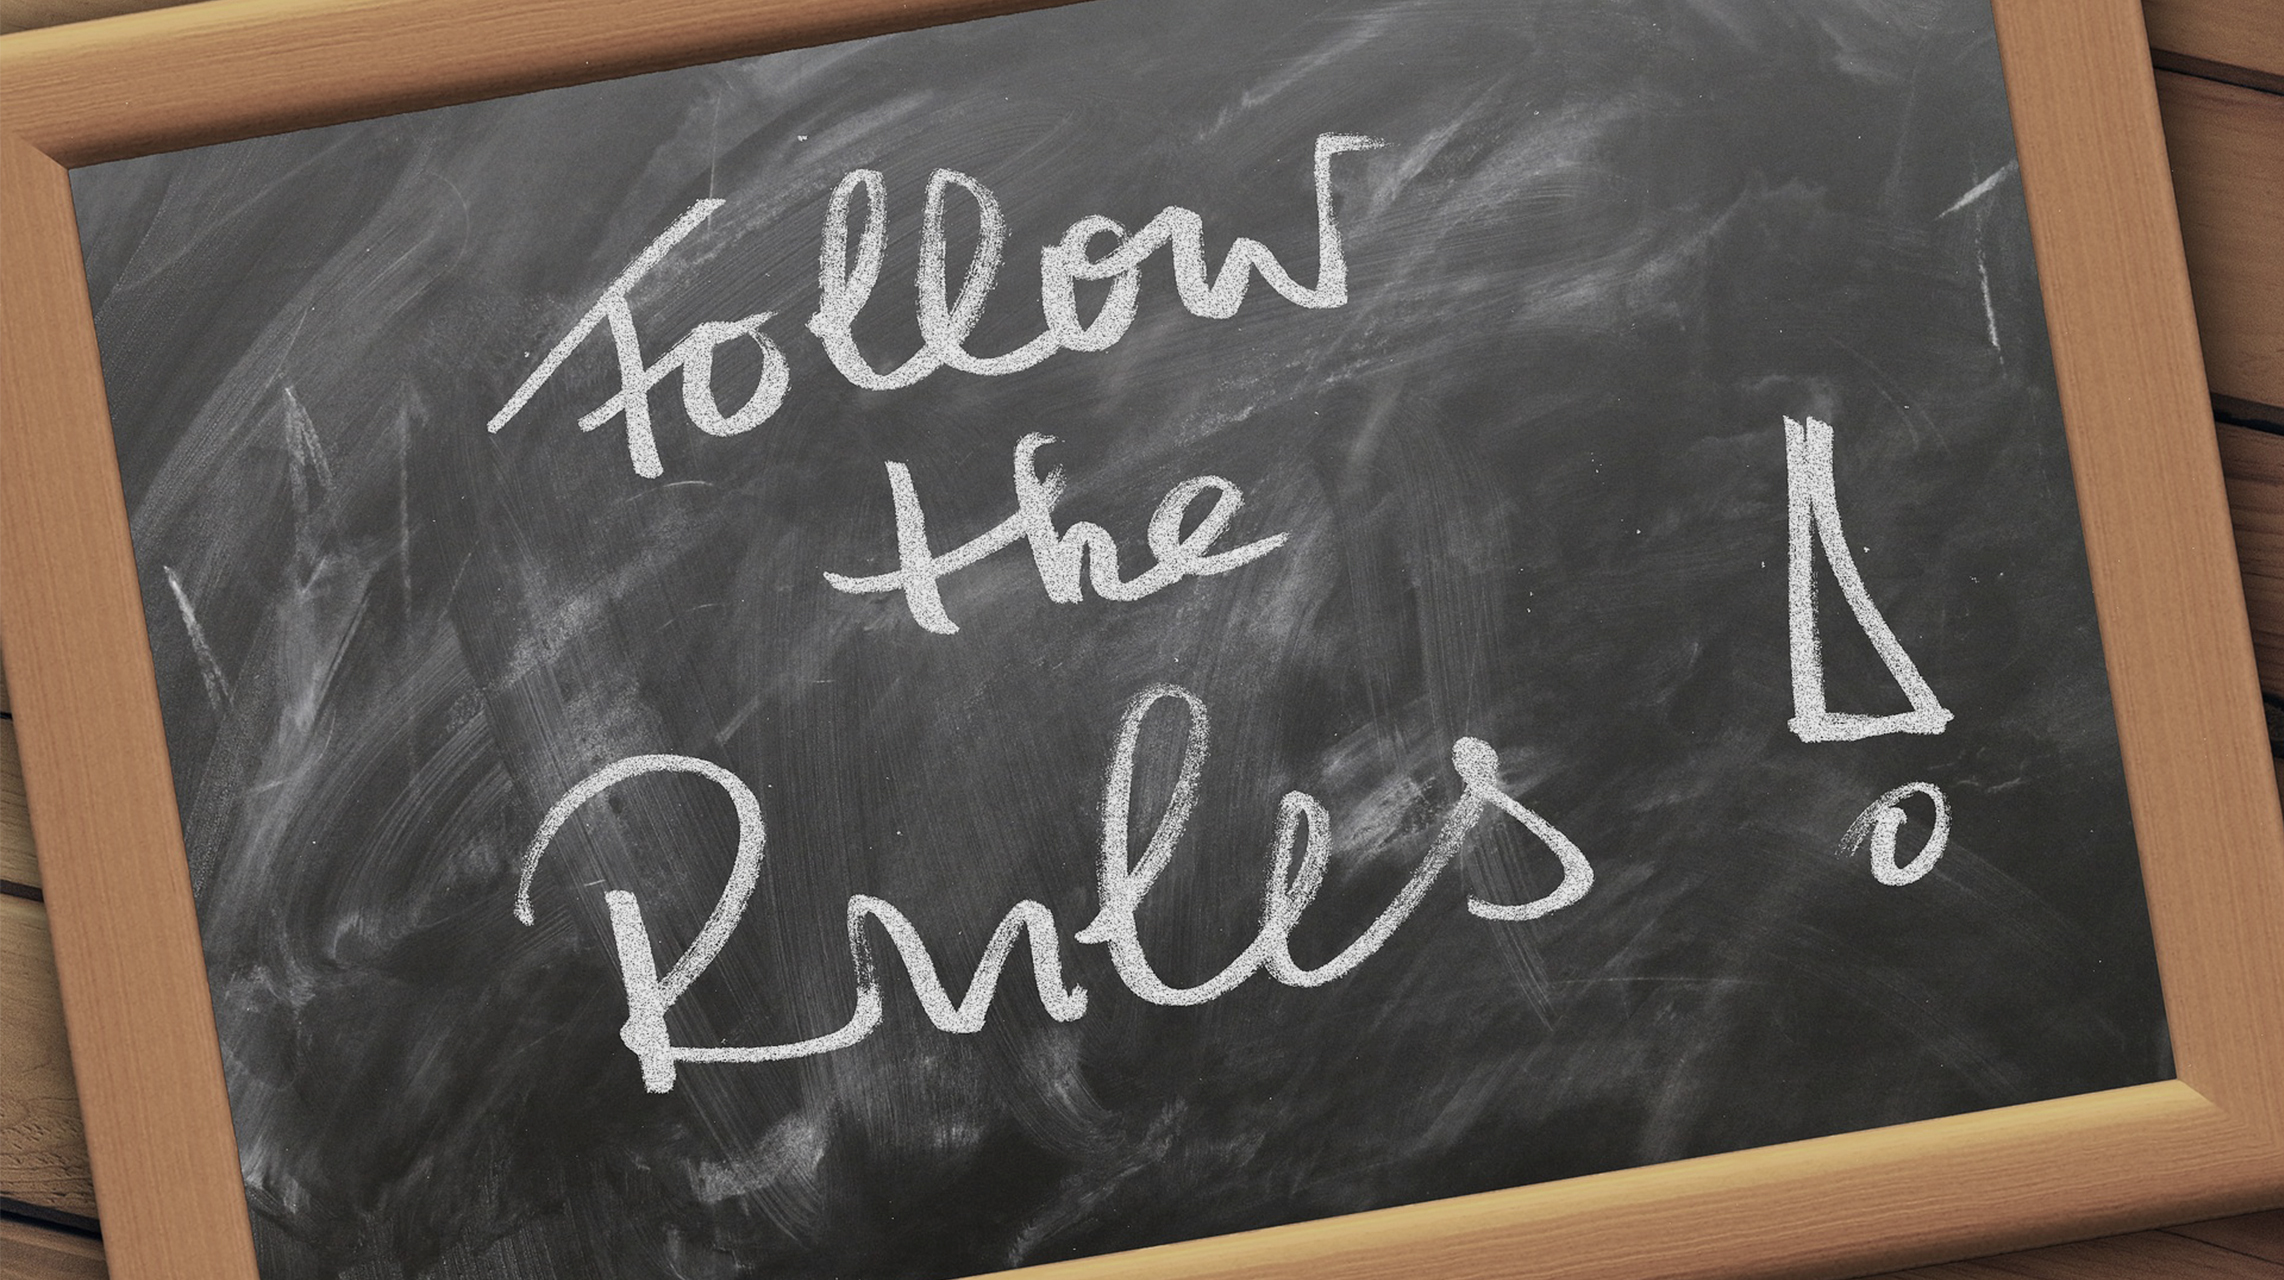 Follow
the
Rules !